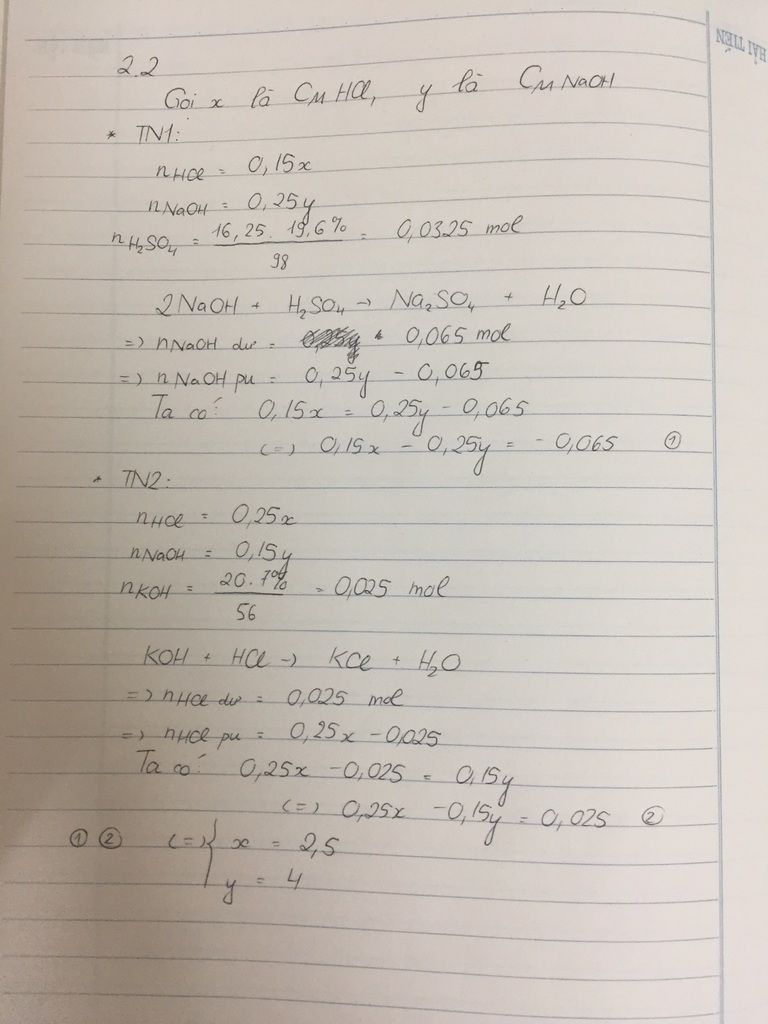 HẢI TIẾN
2.2
Gọi x là CM HCl, y là CM NaOH
* TN1:
nHCl = 0,15x
nNaOH = 0,25y
nH₂SO₄ = 16,25. 19,6% / 98 = 0,0325 mol
2NaOH + H₂SO₄ → Na₂SO₄ + H₂O
=) nNaOH dư = 0,065 mol
=) nNaOH pu = 0,25y - 0,065
Ta có: 0,15x = 0,25y - 0,065
(=) 0,15x - 0,25y = - 0,065 ①
* TN2:
nHCl = 0,25x
nNaOH = 0,15y
nKOH = 20.7% / 56 = 0,025 mol
KOH + HCl → KCl + H₂O
=) nHCl dư = 0,025 mol
=) nHCl pu = 0,25x - 0,025
Ta có: 0,25x - 0,025 = 0,15y
(=) 0,25x - 0,15y = 0,025 ②
① ② (=) { x = 2,5
y = 4